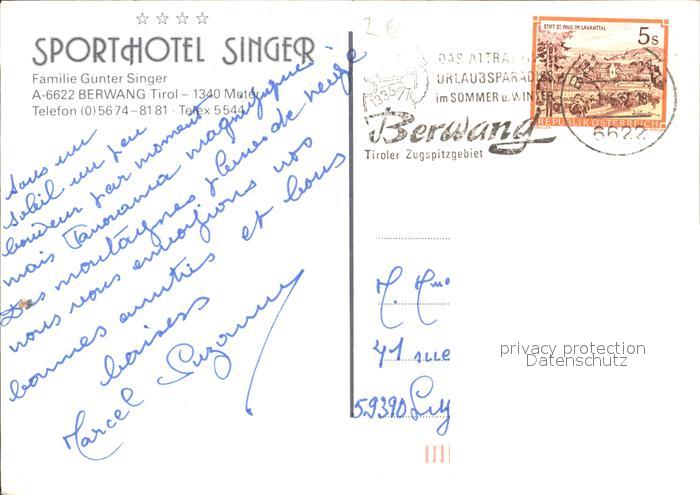 ☆ ☆ ☆ ☆
SPORTHOTEL SINGER
Familie Gunter Singer
A-6622 BERWANG Tirol – 1340 Meter
Telefon (0) 5674 – 8181 · Telex 5544
Sous un
soleil un peu
boudeur par moment
mais Panorama magnifique
Des montagnes pleines de neige
nous vous envoyons nos
bonnes amitiés et bons
baisers
Marcel Suzanne
2€
DAS ATTRA
URLAUBSPARAD
im SOMMER u. WIN
Berwang
Tiroler Zugspitzgebiet
1336 m
STIFT ST. PAUL IM LAVANTTAL
5s
REPUBLIK ÖSTERREICH
6622
M. Mme
41 alle
59390 Ly
privacy protection
Datenschutz